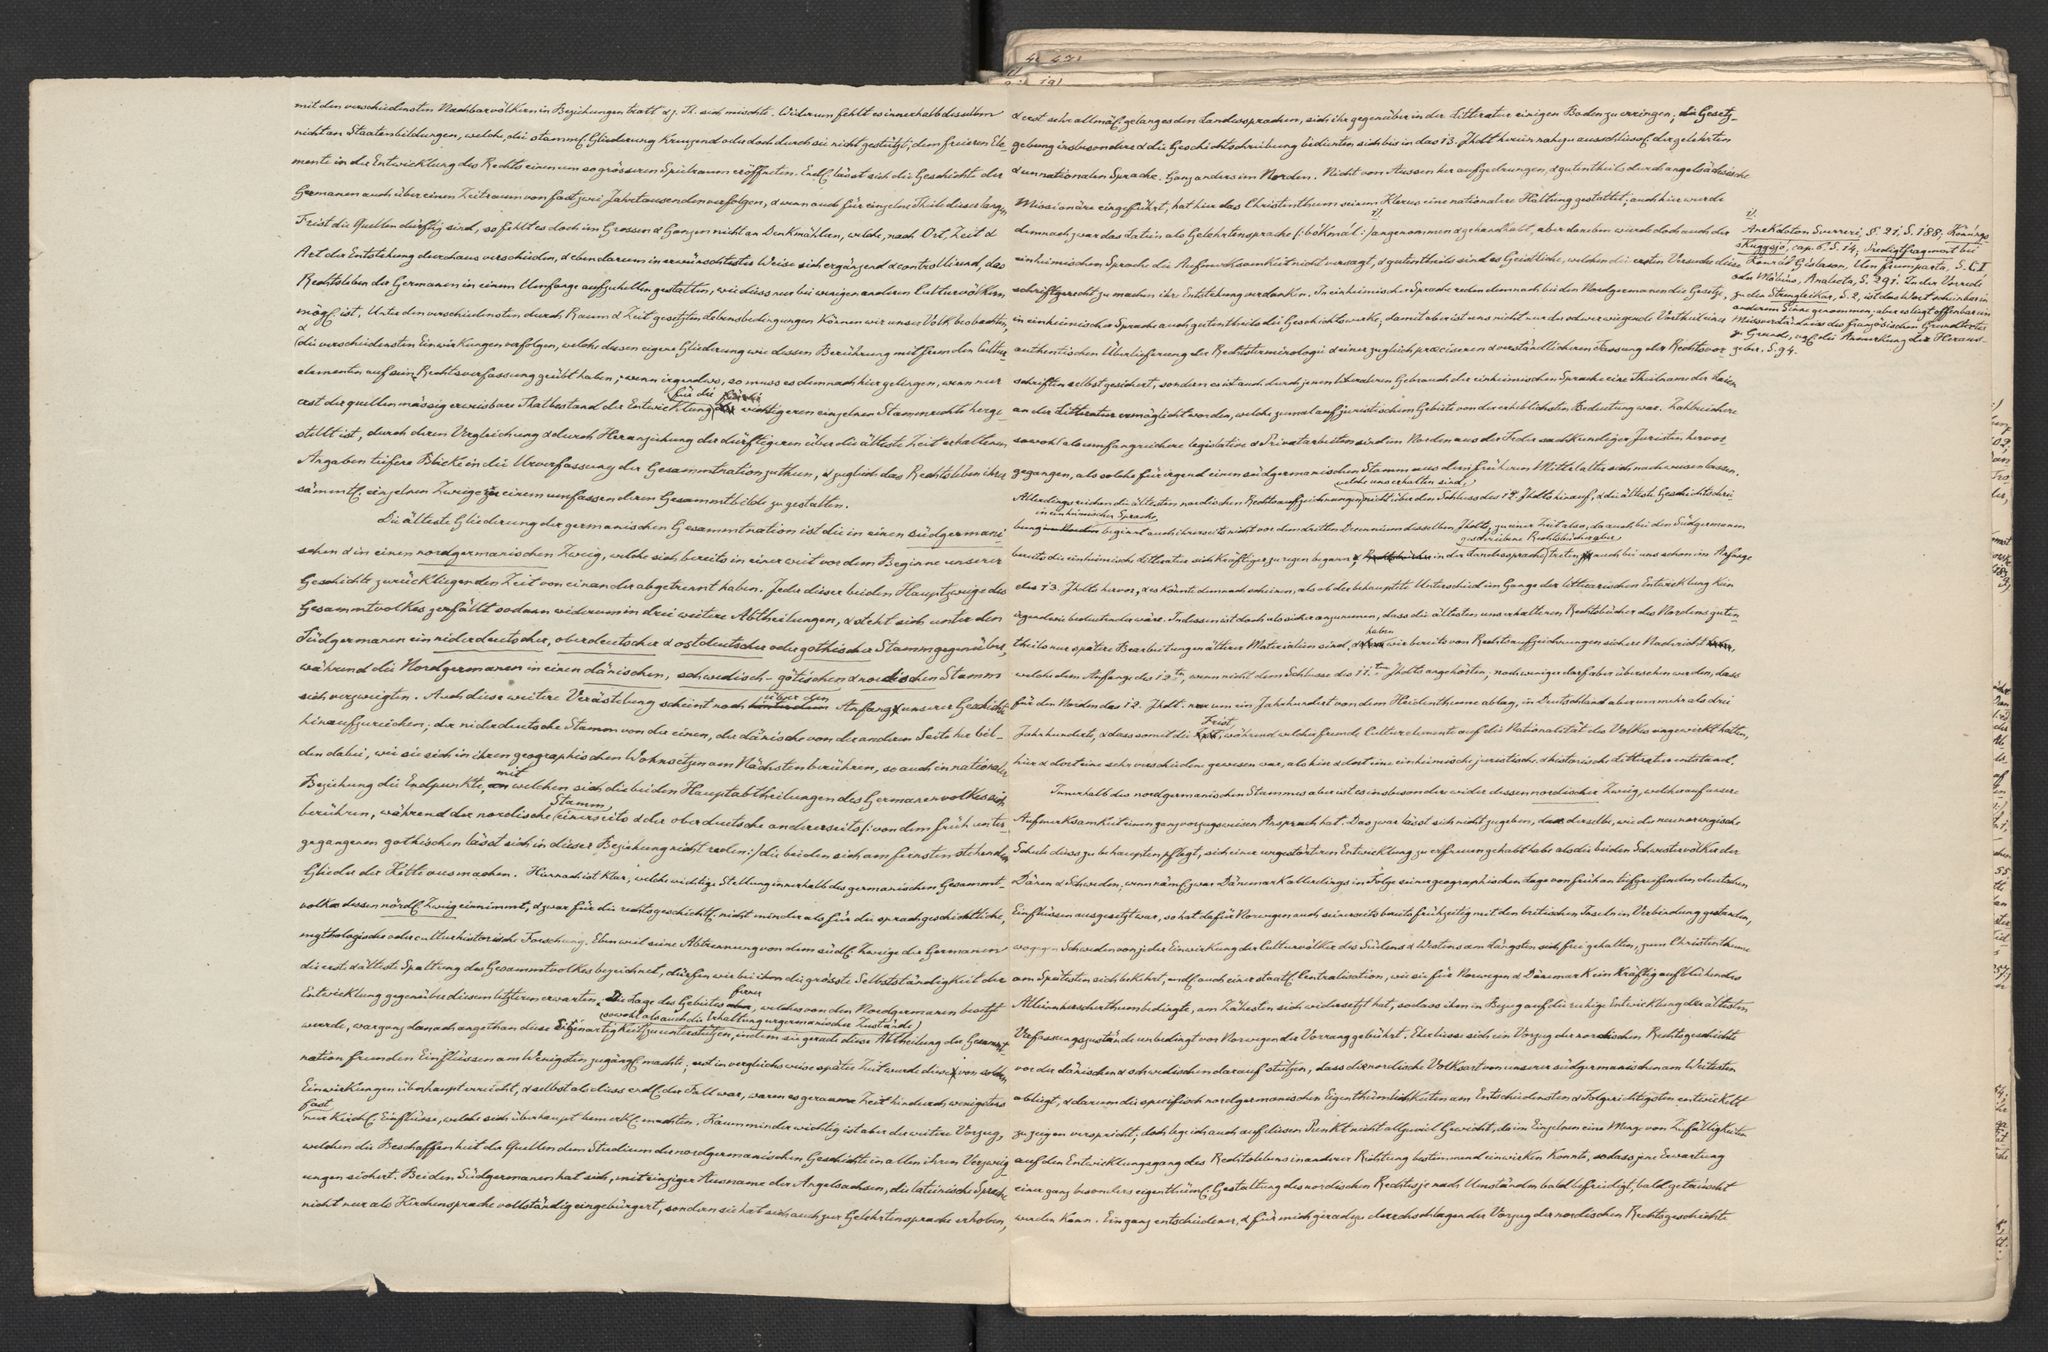 mit den verschiedensten Nachbarvölkern in Beziehungen tratt & z. Th. sich mischte. Widerum fehlt es innerhalb desselben
nicht an Staatenbildungen, welche, die stamml. Gliederung kreuzend oder doch durch sie nicht gestützt, dem freieren Ele-
mente in der Entwicklung des Rechts einen um so grösseren Spielraum eröffneten. Endl. lässt sich die Geschichte der
Germanen auch über einen Zeitraum von fast zwei Jahrtausenden verfolgen, & wenn auch für einzelne Theile dieser langen
Frist die Quellen dürftig sind, so fehlt es doch im Grossen & Ganzen nicht an Denkmählern, welche, nach Ort, Zeit &
Art der Entstehung durchaus verschieden, & eben darum in erwünschtester Weise sich ergänzend & controllirend, das
Rechtsleben der Germanen in einem Umfange aufzuhellen gestatten, wie diess nur bei wenigen anderen Culturvölkern
mögl. ist. Unter den verschiedensten durch Raum & Zeit gesetzten Lebensbedingungen können wir unser Volk beobachten,
&
die verschiedensten Einwirkungen verfolgen, welche dessen eigene Gliederung wie dessen Berührung mit fremden Cultur
elementen auf seine Rechtsverfassung geübt haben; wenn irgendwo, so muss es demnach hier gelingen, wenn nur
für die
erst der quellenmässig erweisbare Thatbestand der Entwicklung der wichtigeren einzelnen Stammrechte herge
stellt ist, durch deren Vergleichung & durch Heranziehung der dürftigeren über die älteste Zeit erhaltenen
Angaben tiefere Blicke in die Urverfassung der Gesammtnation zu thun, & zugleich das Rechtsleben ihrer
sämmtl. einzelnen Zweige zu einem umfassenderen Gesammtbilde zu gestalten.
Die älteste Gliederung der germanischen Gesammtnation ist die in einen südgermani
schen & in einen nordgermanischen Zweig, welche sich bereits in einer weit vor dem Beginne unserer
Geschichte zurückliegenden Zeit von einander abgetrennt haben. Jeder dieser beiden Hauptzweige des
Gesammtvolkes zerfällt sodann widerum in drei weitere Abtheilungen, & steht sich unter den
Südgermanen ein niderdeutscher, oberdeutscher & ostdeutscher oder gothischer Stamm gegenüber,
während die Nordgermanen in einen dänischen, schwedisch-götischen & nordischen Stamm
über den
sich verzweigten. Auch diese weitere Verästelung scheint noch hinter dem Anfang unserer Geschichte
hinaufzureichen; der niderdeutsche Stamm von der einen, der dänische von der anderen Seite her bil-
den dabei, wie sie sich in ihren geographischen Wohnsitzen am Nächsten berühren, so auch in nationaler
mit
Beziehung die Endpunkte, an welchen sich die beiden Hauptabtheilungen des Germanenvolkes sich
Stamm
berühren, während der nordische einerseits & der oberdeutsche andererseits (: von dem früh unter-
gegangenen gothischen lässt sich in dieser Beziehung nicht reden :) die beiden sich am fernsten stehenden
Glieder der Kette ausmachen. Hiernach ist klar, welche wichtige Stellung innerhalb des germanischen Gesammt-
volkes dessen nördl. Zweig einnimmt, & zwar für die rechtsgeschichtl. nicht minder als für die sprachgeschichtliche,
mythologische oder culturhistorische Forschung. Eben weil seine Abtrennung von dem südl. Zweige der Germanen
die erste & älteste Spaltung des Gesammtvolkes bezeichnet, dürfen wir bei ihm die grösste Selbstständigkeit der
ferner
Entwicklung gegenüber diesem letzteren erwarten. Die Lage des Gebietes, welches von den Nordgermanen besetzt
sowohl als auch die Erhaltung urgermanischer Zustände
wurde, war ganz danach angethan diese Eigenartigkeit zu unterstützen, indem sie gerade diese Abtheilung der Gesammt-
nation fremden Einflüssen am Wenigsten zugängl. machte; erst in vergleichsweise später Zeit wurde diese von solchen
Einwirkungen überhaupt erreicht, & selbst als diess endl. der Fall war, waren es geraume Zeit hindurch wenigstens
fast
nur kirchl. Einflüsse, welche sich überhaupt bemerkl. machten. Kaum minder wichtig ist aber der weitere Vorzug,
welchen die Beschaffenheit der Quellen dem Studium der nordgermanischen Geschichte in allen ihren Verzweig
ungen sichert. Bei den Südgermanen hat sich, mit einziger Ausname der Angelsachsen, die lateinische Sprache
nicht nur als Kirchensprache vollständig eingebürgert, sondern sie hat sich auch zur Gelehrtensprache erhoben,
& erst sehr allmähl. gelang es den Landessprachen, sich ihr gegenüber in der Litteratur einigen Boden zu erringen; die Gesetz-
gebung insbesondere & die Geschichtschreibung bedienten sich bis in das 13. Jhdt herein nahezu ausschliessl. der gelehrten
& unnationalen Sprache. Ganz anders im Norden. Nicht von Aussen her aufgedrungen, & gutentheils durch angelsächsische
Missionäre eingeführt, hat hier das Christenthum seinem Klerus eine nationalere Haltung gestattet; auch hier wurde
1).
demnach zwar das Latein als Gelehrtensprache (: bókmál :) angenommen & gehandhabt, aber daneben wurde doch auch der
einheimischen Sprache die Aufmerksamkeit nicht versagt, & gutentheils sind es Geistliche, welchen die ersten Versuche diese
schriftgerecht zu machen ihre Entstehung verdanken. In einheimischer Sprache reden demnach bei den Nordgermanen die Gesetze,
in einheimischer Sprache auch gutentheils die Geschichtswerke; damit aber ist uns nicht nur der schwer wiegende Vortheil einer
authentischen Überlieferung der Rechtsterminologie & einer zugleich präciseren & verständlicheren Fassung der Rechtsvor
schriften selbst gesichert, sondern es ist auch durch jenen liberaleren Gebrauch der einheimischen Sprache eine Theilname der Laien
an der Litteratur ermöglicht worden, welche zumal auf juristischem Gebiete von der erheblichsten Bedeutung war. Zahlreichere
sowohl als umfangreichere legislative & Privatarbeiten sind im Norden aus der Feder sachkundiger Juristen hervor
gegangen, als solche für irgend einen südgermanischen Stamm aus dem früheren Mittelalter sich nachweisen lassen.
welche uns erhalten sind,
Allerdings reichen die ältesten nordischen Rechtsaufzeichnungen nicht über den Schluss des 12. Jhdts hinauf, & die älteste Geschichtschrei
in einheimischer Sprache
bung im Norden beginnt auch ihrerseits nicht vor dem dritten Decennium desselben Jhdts, zu einer Zeit also, da auch bei den Südgermanen
geschriebene Rechtsbücher aber
bereits die einheimische Litteratur sich kräftiger zu regen begann; & Rechtsbücher in der Landessprache treten auch bei uns schon im Anfange
des 13. Jhdts hervor, & es könnte demnach scheinen, als ob der behauptete Unterschied im Gange der litterarischen Entwicklung kein
irgendwie bedeutender wäre. Indessen ist doch als sicher anzunemen, dass die ältesten uns erhaltenen Rechtsbücher des Nordens guten
haben
theils nur spätere Bearbeitungen älterer Materialien sind, & wir bereits von Rechtsaufzeichnungen sichere Nachricht,
welche dem Anfange des 12ten, wenn nicht dem Schlusse des 11ten Jhdts angehörten; noch weniger darf aber übersehen werden, dass
für den Norden das 12. Jhdt. nur um ein Jahrhundert von dem Heidenthume ablag, in Deutschland aber um mehr als drei
Frist,
Jahrhunderte, & dass somit die Zeit, während welcher fremde Culturelemente auf die Nationalität des Volkes eingewirkt hatten,
hier & dort eine sehr verschiedene gewesen war, als hier & dort eine einheimische juristische & historische Litteratur entstand.
Innerhalb des nordgermanischen Stammes aber ist es insbesondere wider dessen nordischer Zweig, welcher auf unsere
Aufmerksamkeit einen ganz vorzugsweisen Anspruch hat. Das zwar lässt sich nicht zugeben, dass derselbe, wie die neunorwegische
Schule diess zu behaupten pflegt, sich einer ungestörteren Entwicklung zu erfreuen gehabt habe als die beiden Schwestervölker der
Dänen & Schweden; wenn näml. zwar Dänemark allerdings in Folge seiner geographischen Lage von früh an tiefgreifenden deutschen
Einflüssen ausgesetzt war, so hat dafür Norwegen auch seinerseits bereits frühzeitig mit den britischen Inseln in Verbindung gestanden,
wogegen Schweden von jeder Einwirkung der Culturvölker des Südens & Westens am Längsten sich frei gehalten, zum Christenthume
am Spätesten sich bekehrt, endl. auch einer staatl. Centralisation, wie sie für Norwegen & Dänemark ein kräftig aufblühendes
Alleinherrscherthum bedingte, am Zähesten sich widersetzt hat, sodass ihm in Bezug auf die ruhige Entwicklung der ältesten
Verfassungszustände unbedingt vor Norwegen der Vorrang gebührt. Eher liesse sich ein Vorzug der nordischen Rechtsgeschichte
vor der dänischen & schwedischen darauf stützen, dass die nordische Volksart von unserer südgermanischen am Weitesten
abliegt, & darum die specifisch nordgermanischen Eigenthümlichkeiten am Entschiedensten & Folgerichtigsten entwickelt
zu zeigen verspricht; doch lege ich auch auf diesen Punkt nicht allzuviel Gewicht, da im Einzelnen eine Menge von Zufälligkeiten
auf den Entwicklungsgang des Rechtslebens in anderer Richtung bestimmend einwirken konnte, sodass jene Erwartung
einer ganz besonders eigenthüml. Gestaltung des nordischen Rechts je nach Umständen bald befriedigt, bald getäuscht
werden kann. Ein ganz entschiedener, & für mich geradezu durchschlagender Vorzug der nordischen Rechtsgeschichte
1).
Anekdoton Sverreri, §. 21, S. 188; Konungs-
skuggsjá, cap. 6, S. 14; Predigtfragment bei
Konráð Gislason, Um frumparta, S. CI
oder Möbius, Analecta, S. 291. In der Vorrede
zu den Strengleikar, S. 2, ist das Wort scheinbar in
anderem Sinne genommen; aber es liegt offenbar ein
Missverständniss des französischen Grundtextes
zu Grunde, vgl. die Anmerkung der Heraus-
geber, S. 94.